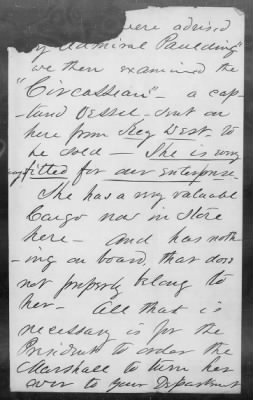 were advised
by Admiral Paulding"
we then examined the
"Circassian" – a cap-
-tured Vessel – sent on
here from Key West, to
be sold – She is very
fitted for our enterprise
She has a very valuable
Cargo now in Store
here – And has noth-
-ing on board, that does
not properly belong to
her – All that is
necessary is for the
President to order the
Marshall to turn her
over to your Department